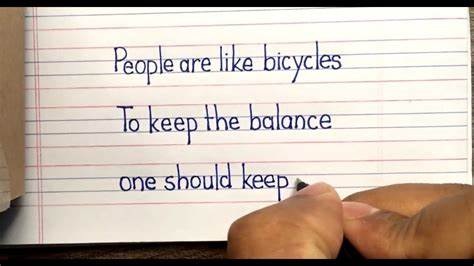 People are like bicycles
To keep the balance
one should keep